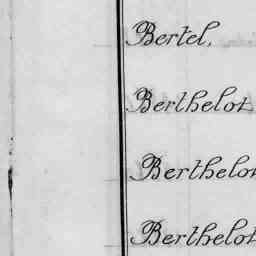 Bertel,
Berthelot
Berthelot
Berthelot